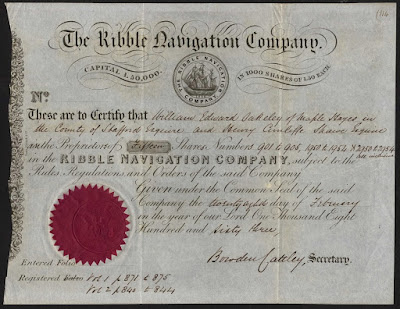 The Ribble Navigation Company.
CAPITAL £50,000. IN 1000 SHARES OF £50 EACH.
THE RIBBLE NAVIGATION COMPANY
No.
These are to Certify that William Edward Oakeley of Maple Hayes, in
the County of Stafford Esquire and Henry Cunliffe Shawe Esquire
are the Proprietors of Fifteen Shares, Numbers 901 to 905, 1950 to 1954 &
in the RIBBLE NAVIGATION COMPANY, subject to the
Rules Regulations and Orders of the said Company.
Given under the Common Seal of the said
Company the twenty sixth day of February
in the year of our Lord One Thousand Eight
Hundred and Sixty three,
Bowden Catteley, Secretary.
Entered Folio
Registered Vol 1 p 871 to 875
Vol 2 p 840 to 844